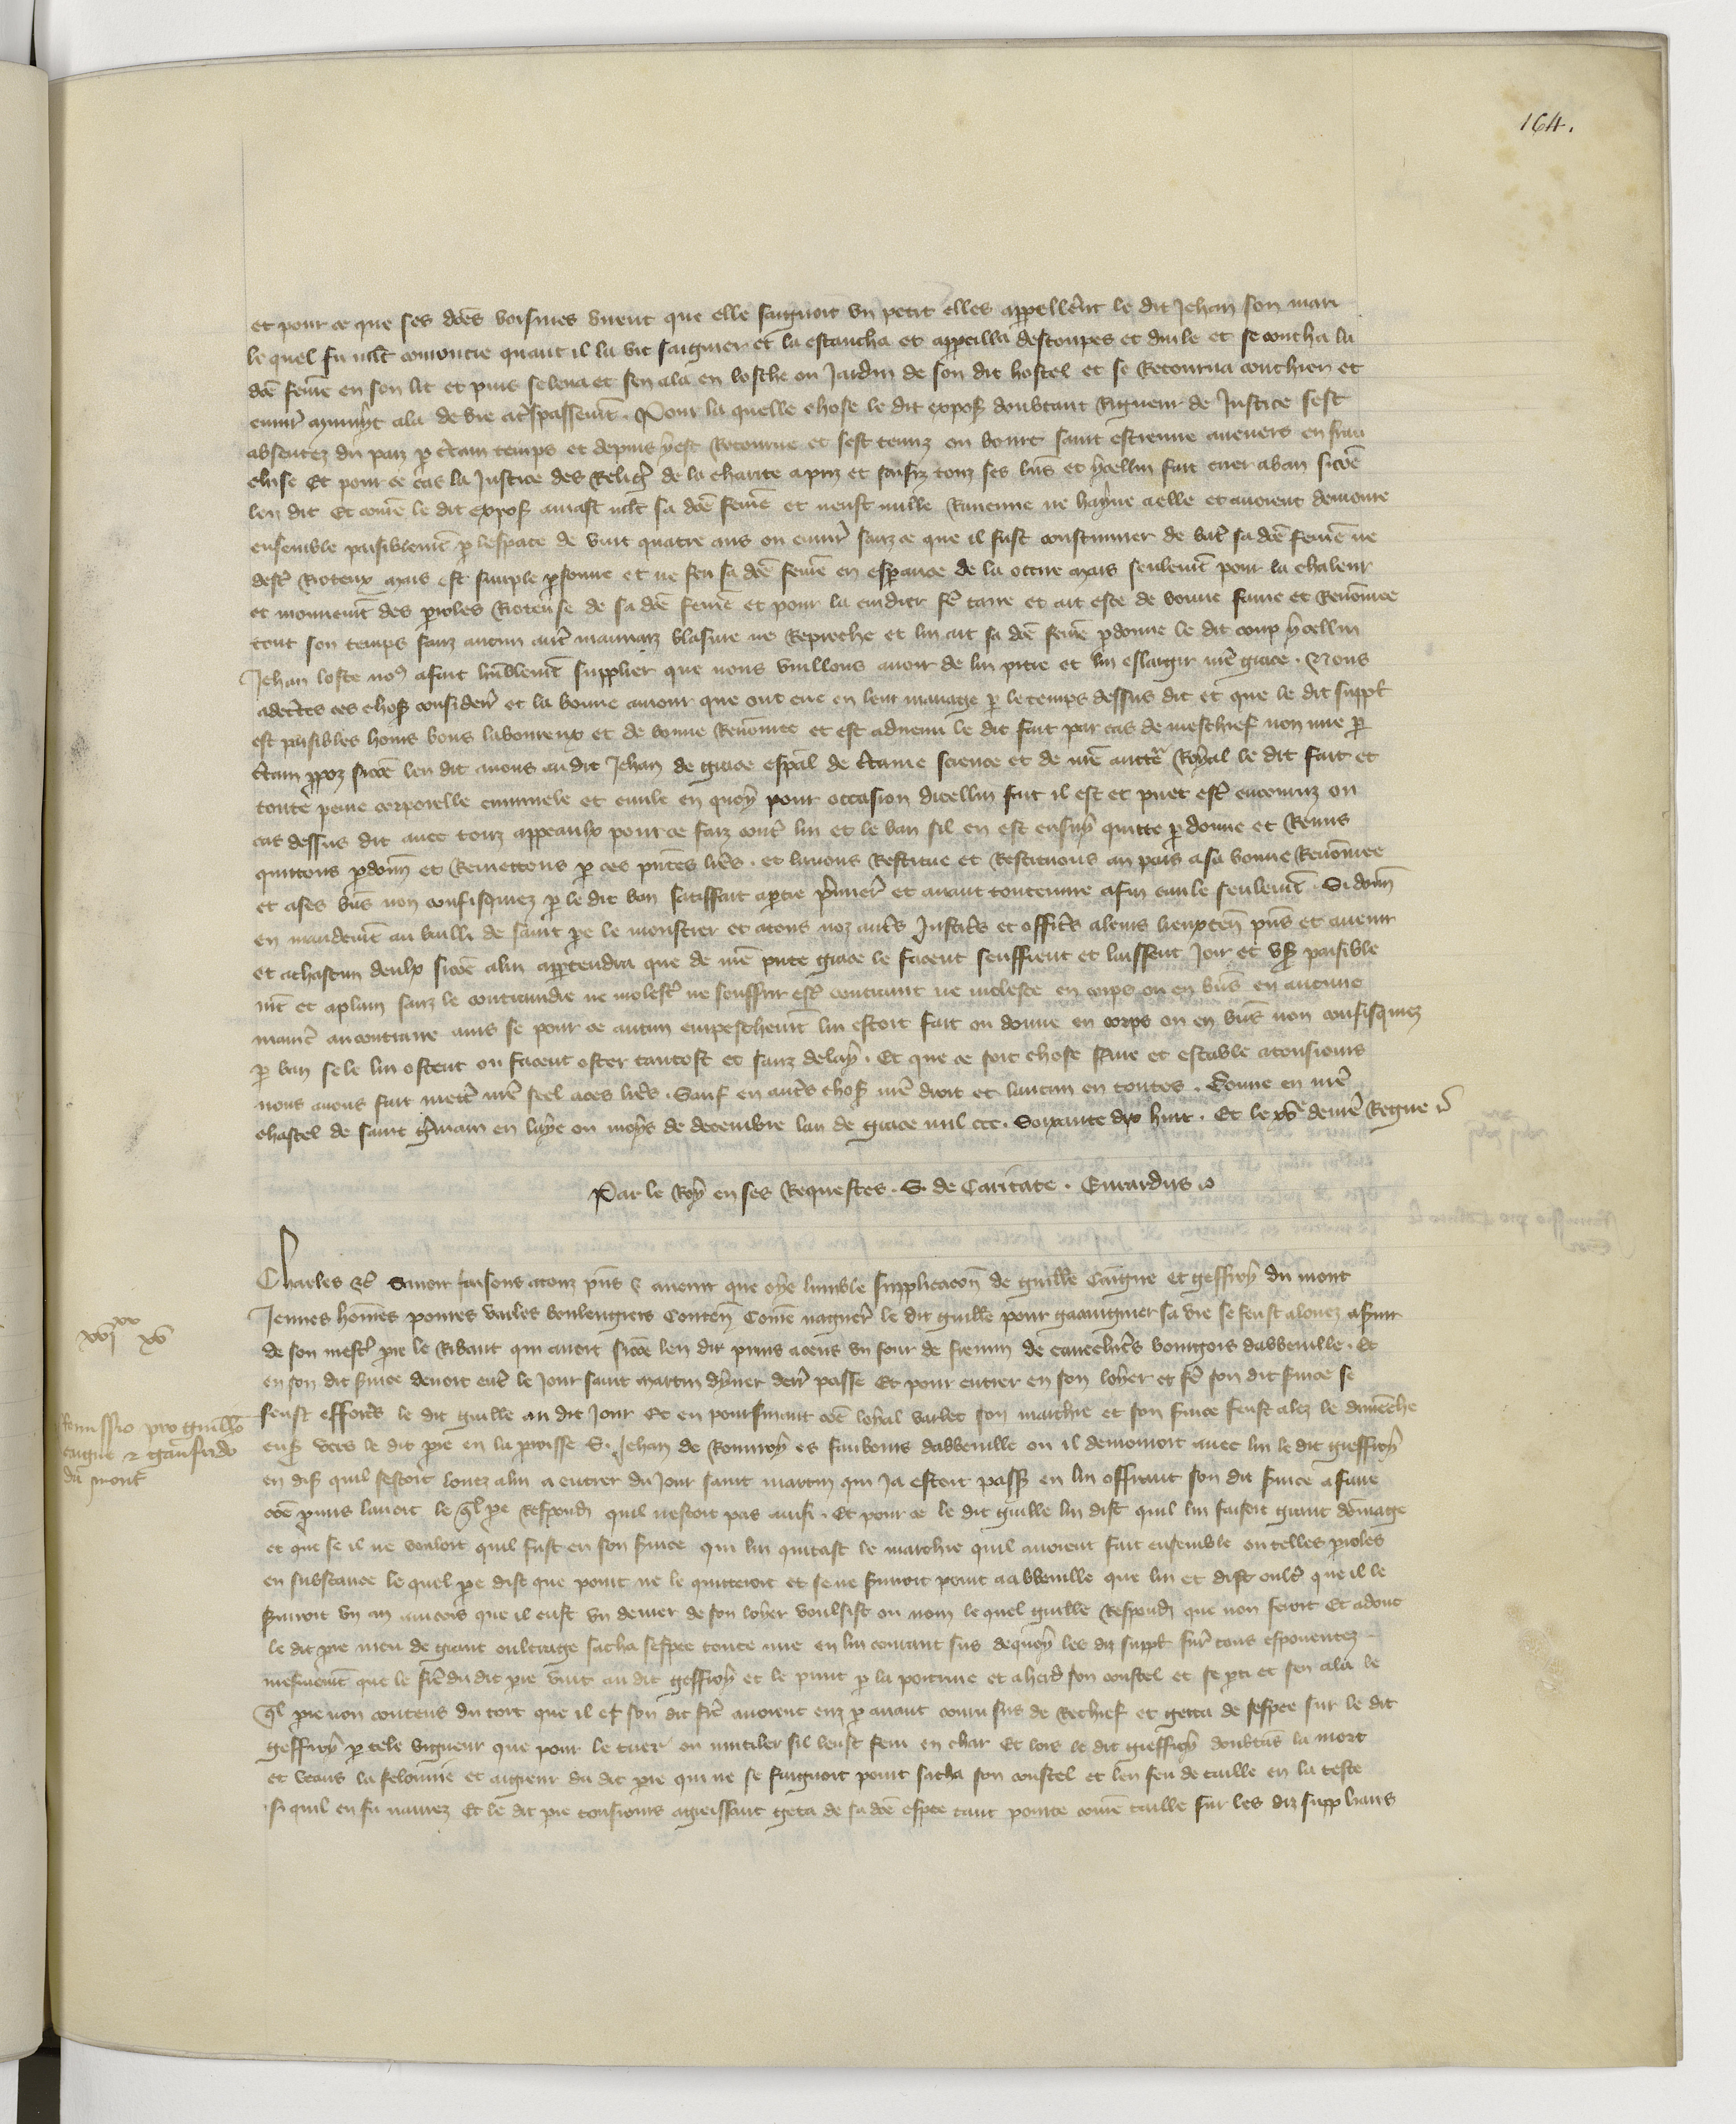 164.
et pour ce que ses dces voisines virent que elle saignoit un petit elles appellerent le dit Jehan son mari
le quel fu mlt couroucie quant il la vit saignier et la estancha et appareilla destoupes et duile et se coucha la
dce feme en son lit et puis se leva et sen ala en losche ou Jardin de son dit hostel et se Retourna couchier et
environ mynuyt ala de vie a trespassement. Pour la quelle chose le dit expos doubtant Rigueur de Justice sest
absentez du pais p certain temps et depuis yest Retourne et sest tenuz ou bourc saint estienne auevers en
cluse Et pour ce cas la Justice des Religs de la charite a pris et saisiz touz ses biens et ycellui fait crier a ban sicoe
len dit Et come le dit expos amast mlt sa dce feme et neust nulle Rancune ne hayne a elle et avoient demoure
ensemble paisiblemt p lespace de vint quatre ans ou environ sanz ce que il fust coustumier de batre sa dce feme ne
destre Rioteux mais est simple psonne et ne feri sa dce feme en esperance de la occire mais seulemt pour la chaleur
et mouvemt des proles Rioteuse de sa dce feme et pour la cuidier fe taire et ait este de bonne fame et Renomee
tout son temps sanz aucun autre mauvaiz blasme ne Reproche et lui ait sa dce feme pdonne le dit coup ycellui
Jehan loste nos a fait humblemt supplier que nous vuillons avoir de lui pitie et lui eslargir nre grace. Nous
adcertes ces choses considerees et la bonne amour que ont eue en leur mariage p le temps dessus dit et que le dit suppl
est paisibles homs bons laboureux et de bonne Renomee et est advenu le dit fait par cas de meschief non mie p
certain ppoz sicoe len dit avons au dit Jehan de grace espal de certaine science et de nre auctte Royal le dit fait et
toute peine corporelle criminele et civile en quoy pour occasion dicellui fait il est et puet estre encouruz ou
cas dessus dit avec touz appeaulx pour ce faiz contre lui et le ban sil en est ensuy quitte pdonne et Remis
quittons pdonnons et Remettons p ces pntes lres. et lavons Restitue et Restituons au pais a sa bonne Renomee
et a ses biens non confisquiez p le dit ban satiffait a ptie premier et avant toutevuie a fin civile seulemt. Si donn
en mandemt au bailli de saint pe le moustier et a touz noz autres Justicrs et officrs a leurs lieuxten pns et avenir
et a chascun deulx sicoe a lui appartendra que de nre pnte grace le facent seuffrent et laissent Joir et user paisible
mt et a plain sanz le contraindre ne molester ne souffrir estre contraint ne moleste en corps ou en biens en aucune
maniere au contraire mais se pour ce aucun empeschemt lui estoit fait ou donne en corps ou en biens non confisquiez
p ban se le lui ostent ou facent oster tantost et sanz delay. Et que ce soit chose ferme et estable a tousiours
nous avons fait mettre nre seel a ces lres. Sauf en autres choses nre droit et lautrui en toutes. Donne en nre
chastel de saint germain en laye ou moys de decembre lan de grace mil ccc. Soixante dix huit. Et le xve de nre Regne
Par le Roy en ses Requestes. S. de Caritate. Evrardus
Charles &c Savoir faisons a touz pns & avenir que oye lumble supplicacon de guille Caigne et geffroy du mont
Jeunes homes povres vailes boulengiers Conten Come naguere le dit guille pour gaaingnier sa vie se feust alouez a servir
de son mestr pre le Ribaut qui avoit sicoe len dit prins a cens un four de firmin de bourgois dabbeville. Et
en son dit service devoit entrer le Jour saint martin dyver derr passe Et pour entrer en son loyer et fe son dit service se
feust efforcies le dit guille au dit Jour Et en poursuiant coe loyal varlet son marchie et son service feust alez le dimenche
ens vers le dit pre en la proisse S. Jehan de Rouvroy es faubours dabbeville ou il demouroit avec lui le dit gieffroy
en dis quil sestoit louez a lui a entrer du Jour saint martin qui Ja estoit passe en lui offrant son dit service a faire
coe pmis lavoit le ql pre Respondi quil nestoit pas ainsi. Et pour ce le dit guille lui dist quil lui faisoit grant domage
et que se il ne vouloit quil fust en son service qui lui quitast le marchie quil avoient fait ensemble ou telles proles
en substance le quel pre dist que point ne le quitteroit et se ne serviroit point a abbeville que lui et dist oultre que il le
serviroit un an aincois que il eust un denier de son loyer voulsist ou non le quel guille Respondi que non feroit Et adonc
le dit pre meu de grant oultrage sacha sespee toute nue en lui courant sus de quoy les diz suppl furent touz espouentez
mesmemt que le fre du dit pre vint au dit geffroy et le print p la poitrine et aherd son coustel et se pti et sen ala le
ql pre non contens du tort que il et son dit fre avoient euz p avant couru sus de Rechief et getta de sespee sur le dit
geffroy p tele vigueur que pour le tuer ou mutiler sil leust feru en char Et lors le dit gieffroy doubtans la mort
et veans la felonnie et aigreur du dit pre qui ne se faignoit point sacha son coustel et len feri de taille en la teste
si quil en fu navrez Et le dit pre tousiours aigreissant geta de sa dce espee tant pointe come taille sur les diz supplians
xvi xx xv
Remissio pro guillo
caigne & gaufrido
du mont